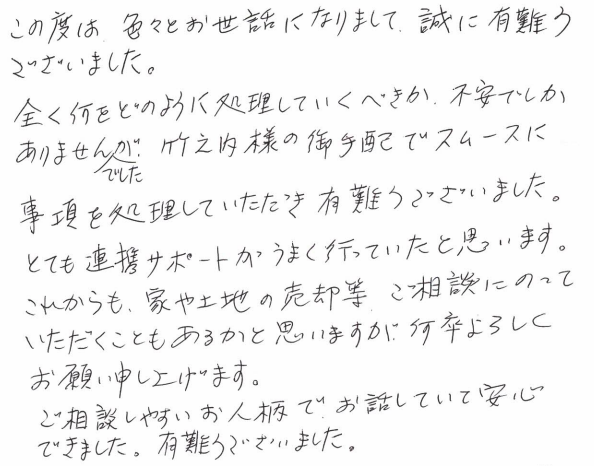 この度は、色々とお世話になりまして、誠に有難う
ございました。
全く何をどのように処理していくべきか、不安でしか
ありませんでしたが、竹之内様の御手配でスムースに
事項を処理していただき有難うございました。
とても連携サポートがうまく行っていたと思います。
これからも、家や土地の売却等、ご相談にのって
いただくこともあるかと思いますが、何卒よろしく
お願い申し上げます。
ご相談しやすいお人柄で、お話していて安心
できました。有難うございました。